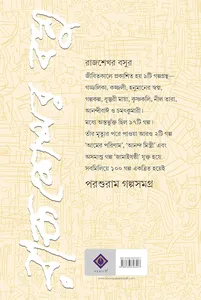 রাজশেখর বসু
রাজশেখর বসুর
জীবিতকালে প্রকাশিত হয় ৯টি গল্পগ্রন্থ—
গড্ডলিকা, কজ্জলী, হনুমানের স্বপ্ন,
গল্পকল্প, ধুস্তুরী মায়া, কৃষ্ণকলি, নীল তারা,
আনন্দীবাঈ ও চমৎকুমারী।
মধ্যে অন্তর্ভুক্ত ছিল ৯৭টি গল্প।
তাঁর মৃত্যুর পরে পাওয়া আরও ২টি গল্প
‘আমের পরিণাম’, ‘আনন্দ মিস্ত্রী’ এবং
অসমাপ্ত গল্প ‘জামাইষষ্ঠী’ যুক্ত হয়ে
সবমিলিয়ে ১০০ গল্প একত্রিত হয়েই
পরশুরাম গল্পসমগ্র